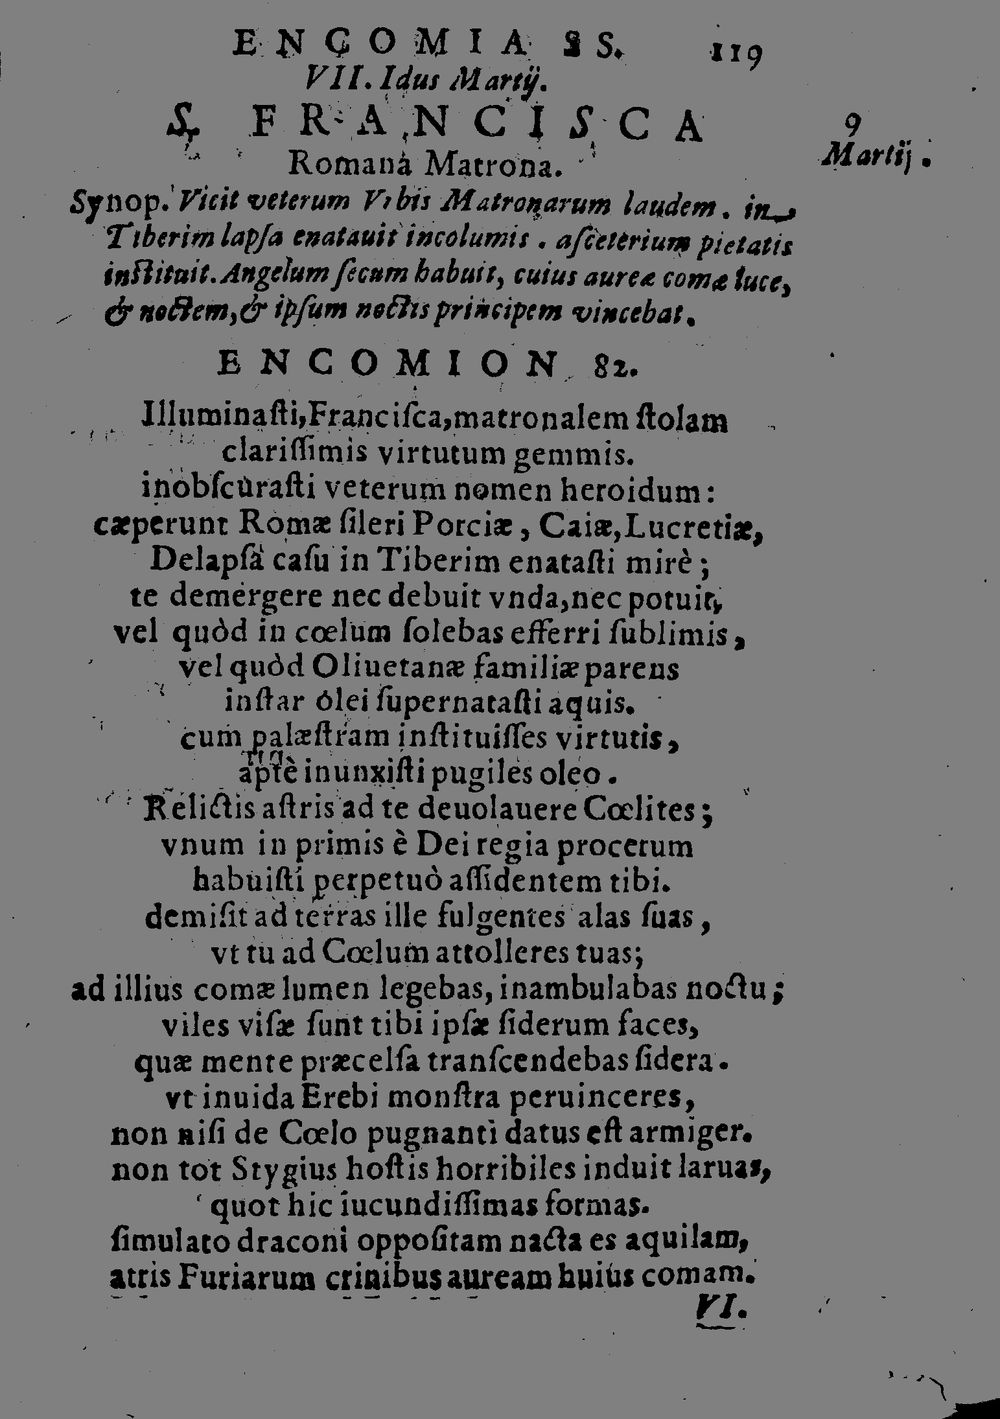 ENCOMIA SS. 119
VII. Idus Martij.
S. FRANCISCA
9
Martij.
Romana Matrona.
Synop. Vicit veterum Vrbis Matronarum laudem. in
Tiberim lapſa enatauit incolumis. aſceterium pietatis
inſtituit. Angelum ſecum habuit, cuius aureæ comæ luce,
& noctem, & ipſum noctis principem vincebat.
ENCOMION 82.
Illuminaſti, Franciſca, matronalem ſtolam
clariſſimis virtutum gemmis.
inobſcuraſti veterum nomen heroidum:
cæperunt Romæ ſileri Porciæ, Caiæ, Lucretiæ,
Delapſa caſu in Tiberim enataſti mirè;
te demergere nec debuit vnda, nec potuit,
vel quòd in cœlum ſolebas efferri ſublimis,
vel quòd Oliuetanæ familiæ parens
inſtar olei ſupernataſti aquis.
cum palæſtram inſtituiſſes virtutis,
aptè inunxiſti pugiles oleo.
Relictis aſtris ad te deuolauere Cœlites;
vnum in primis è Dei regia procerum
habuiſti perpetuò aſſidentem tibi.
demiſit ad terras ille fulgentes alas ſuas,
vt tu ad Cœlum attolleres tuas;
ad illius comæ lumen legebas, inambulabas noctu;
viles viſæ ſunt tibi ipſæ ſiderum faces,
quæ mente præcelſa tranſcendebas ſidera.
vt inuida Erebi monſtra peruinceres,
non niſi de Cœlo pugnanti datus eſt armiger.
non tot Stygius hoſtis horribiles induit laruas,
quot hic iucundiſſimas formas.
ſimulato draconi oppoſitam nacta es aquilam,
atris Furiarum crinibus auream huius comam.
VI.